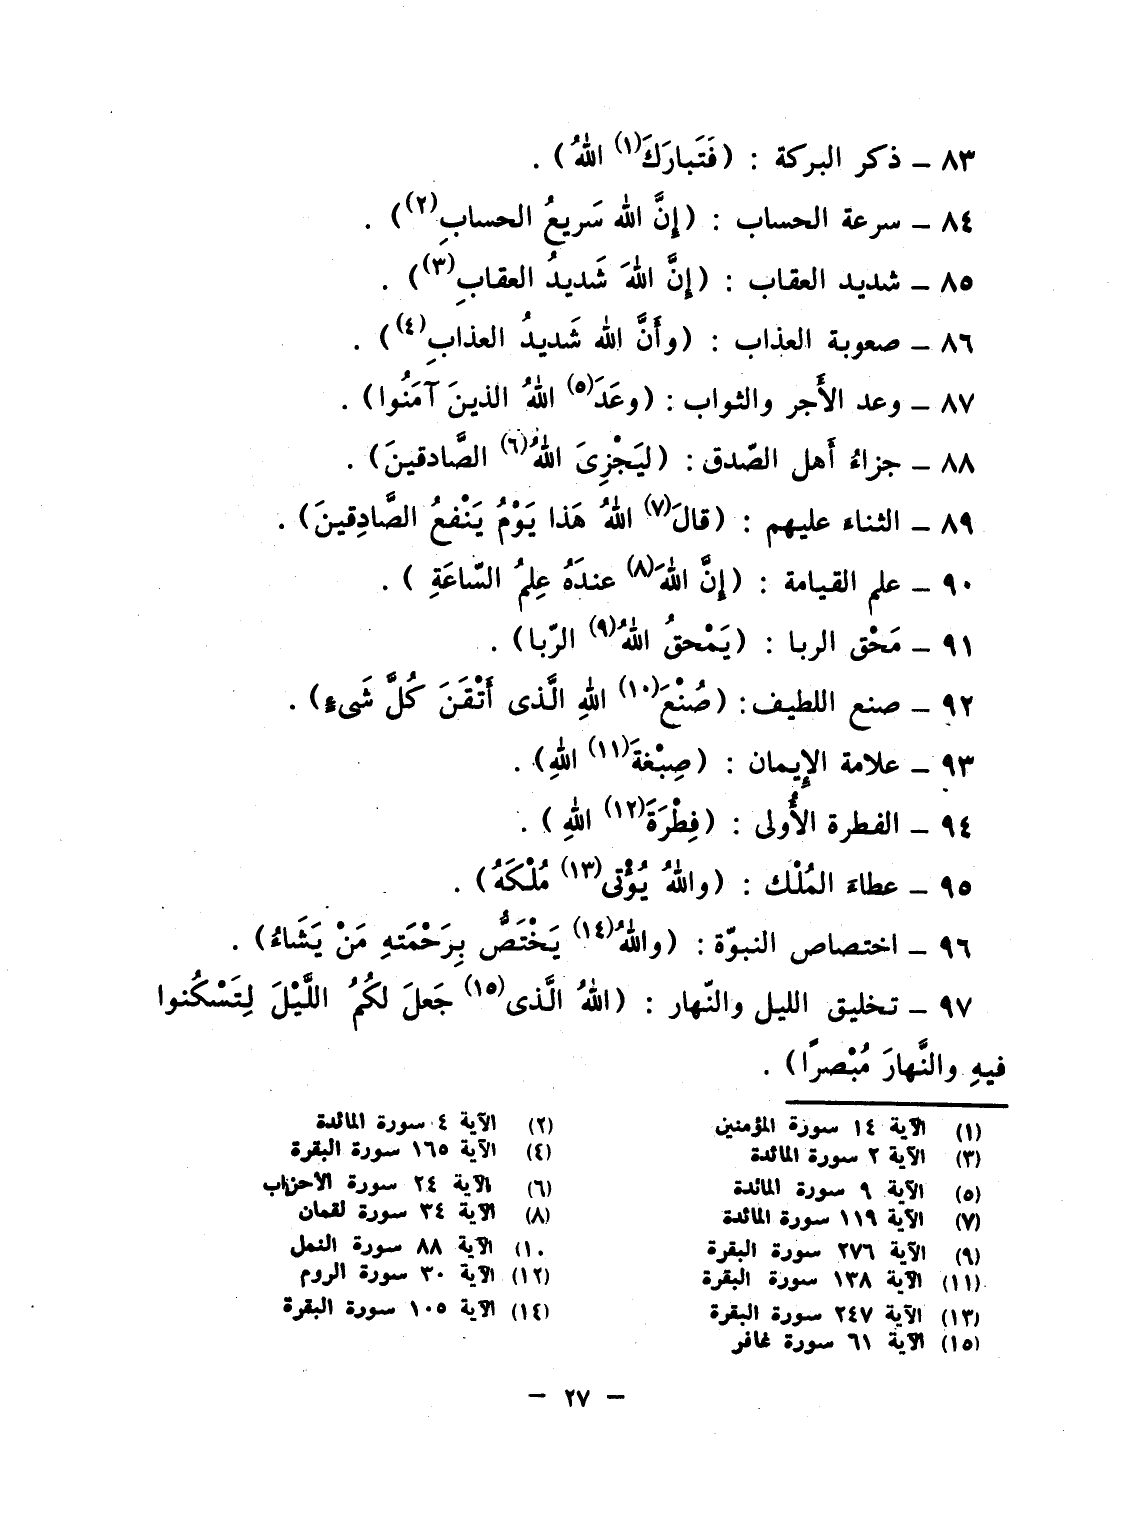 ٨٣ ــ ذكر البركة : (فَتَبارَكَ(١) اللهُ) .
٨٤ ــ سرعة الحساب : (إنَّ الله سَريعُ الحسابِ(٢)) .
٨٥ ــ شديد العقاب : (إنَّ اللهَ شَديدُ العقابِ(٣)) .
٨٦ ــ صعوبة العذاب : (وأنَّ الله شَديدُ العذابِ(٤)) .
٨٧ ــ وعد الأَجر والثواب : (وعَدَ(٥) اللهُ الذينَ آمَنُوا) .
٨٨ ــ جزاءُ أَهل الصّدق : (ليَجْزِىَ اللهُ(٦) الصَّادقينَ) .
٨٩ ــ الثناء عليهم : (قالَ(٧) اللهُ هَذا يَوْمُ يَنْفعُ الصَّادِقينَ) .
٩٠ ــ علم القيامة : (إنَّ اللهَ(٨) عندَهُ عِلمُ السّاعَةِ ) .
٩١ ــ مَحْق الربا : (يَمْحقُ اللهُ(٩) الرّبا) .
٩٢ ــ صنع اللطيف : (صُنْعَ(١٠) اللهِ الَّذى أَتْقَنَ كُلَّ شَىءٍ) .
٩٣ ــ علامة الإِيمان : (صِبْغةَ(١١) اللهِ) .
٩٤ ــ الفطرة الأُولى : (فِطْرَةَ(١٢) اللهِ ) .
٩٥ ــ عطاءَ المُلْك : (واللهُ يُؤْتى(١٣) مُلْكَهُ) .
٩٦ ــ اختصاص النبوّة : (واللهُ(١٤) يَخْتَصُّ بِرَحْمَتهِ مَنْ يَشَاءُ) .
٩٧ ــ تخليق الليل والنّهار : (اللهُ الَّذى(١٥) جَعلَ لكُمُ اللَّيْلَ لِتَسْكُنوا
فيهِ والنَّهارَ مُبْصرًا) .
(١) الآية ١٤ سورة المؤمنين (٢) الآية ٤ سورة المائدة
(٣) الآية ٢ سورة المائدة (٤) الآية ١٦٥ سورة البقرة
(٥) الآية ٩ سورة المائدة (٦) الآية ٢٤ سورة الأحزاب
(٧) الآية ١١٩ سورة المائدة (٨) الآية ٣٤ سورة لقمان
(٩) الآية ٢٧٦ سورة البقرة ١٠) الآية ٨٨ سورة النمل
(١١) الآية ١٣٨ سورة البقرة (١٢) الآية ٣٠ سورة الروم
(١٣) الآية ٢٤٧ سورة البقرة (١٤) الآية ١٠٥ سورة البقرة
(١٥) الآية ٦١ سورة غافر
— ٢٧ —